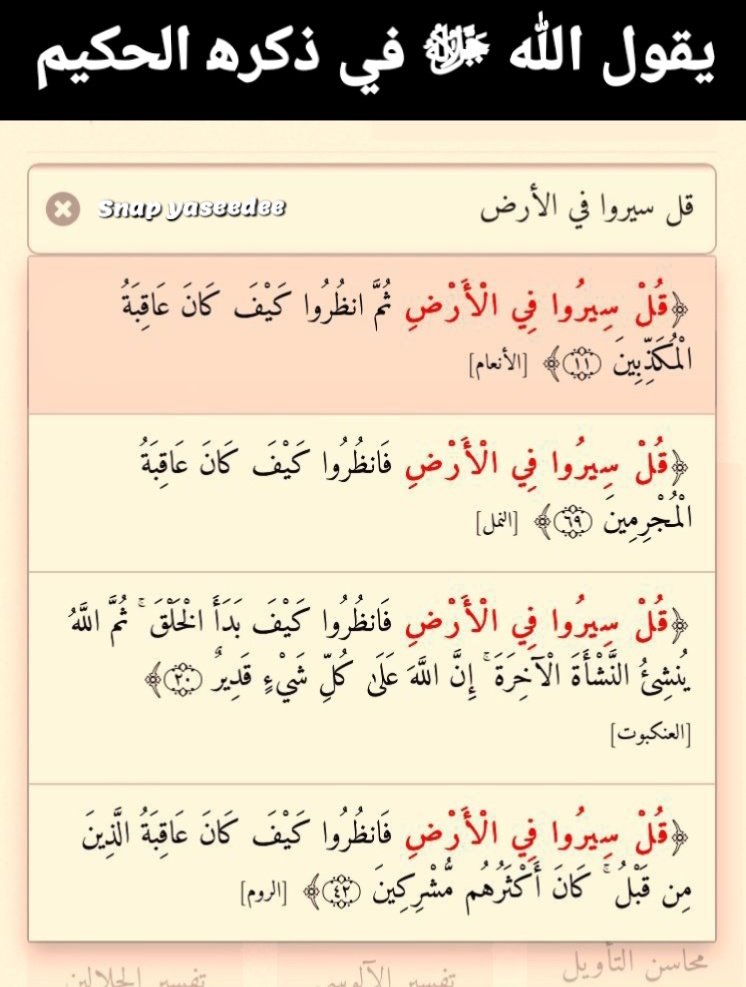 يقول الله ﷻ في ذكره الحكيم
قل سيروا في الأرض Snap yaseedee
﴿قُلْ سِيرُوا فِي الْأَرْضِ ثُمَّ انظُرُوا كَيْفَ كَانَ عَاقِبَةُ
الْمُكَذِّبِينَ ۝١١﴾ [الأنعام]
﴿قُلْ سِيرُوا فِي الْأَرْضِ فَانظُرُوا كَيْفَ كَانَ عَاقِبَةُ
الْمُجْرِمِينَ ۝٦٩﴾ [النمل]
﴿قُلْ سِيرُوا فِي الْأَرْضِ فَانظُرُوا كَيْفَ بَدَأَ الْخَلْقَ ۚ ثُمَّ اللَّهُ
يُنشِئُ النَّشْأَةَ الْآخِرَةَ ۚ إِنَّ اللَّهَ عَلَىٰ كُلِّ شَيْءٍ قَدِيرٌ ۝٢٠﴾
[العنكبوت]
﴿قُلْ سِيرُوا فِي الْأَرْضِ فَانظُرُوا كَيْفَ كَانَ عَاقِبَةُ الَّذِينَ
مِن قَبْلُ ۚ كَانَ أَكْثَرُهُم مُّشْرِكِينَ ۝٤٢﴾ [الروم]
محاسن التأويل
تفسير الآلوسي تفسير الجلالين